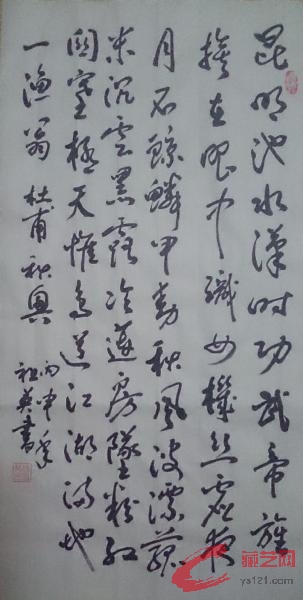 昆明池水漢时功武帝旌
旗在眼中織女機丝虚夜
月石鲸鳞甲動秋風波漂菰
米沉雲黑露冷蓮房墜粉红
関塞極天惟鸟道江湖满地
一渔翁 杜甫秋興
丙申年
祖英書
藏艺网
ys121.com